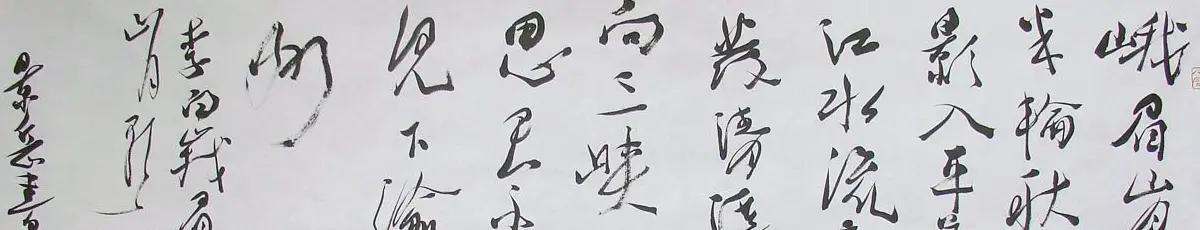 峨眉山月
半輪秋
影入平
江水流
發清溪
向三峡
思君不
見下渝
州
李白峨眉
山月歌